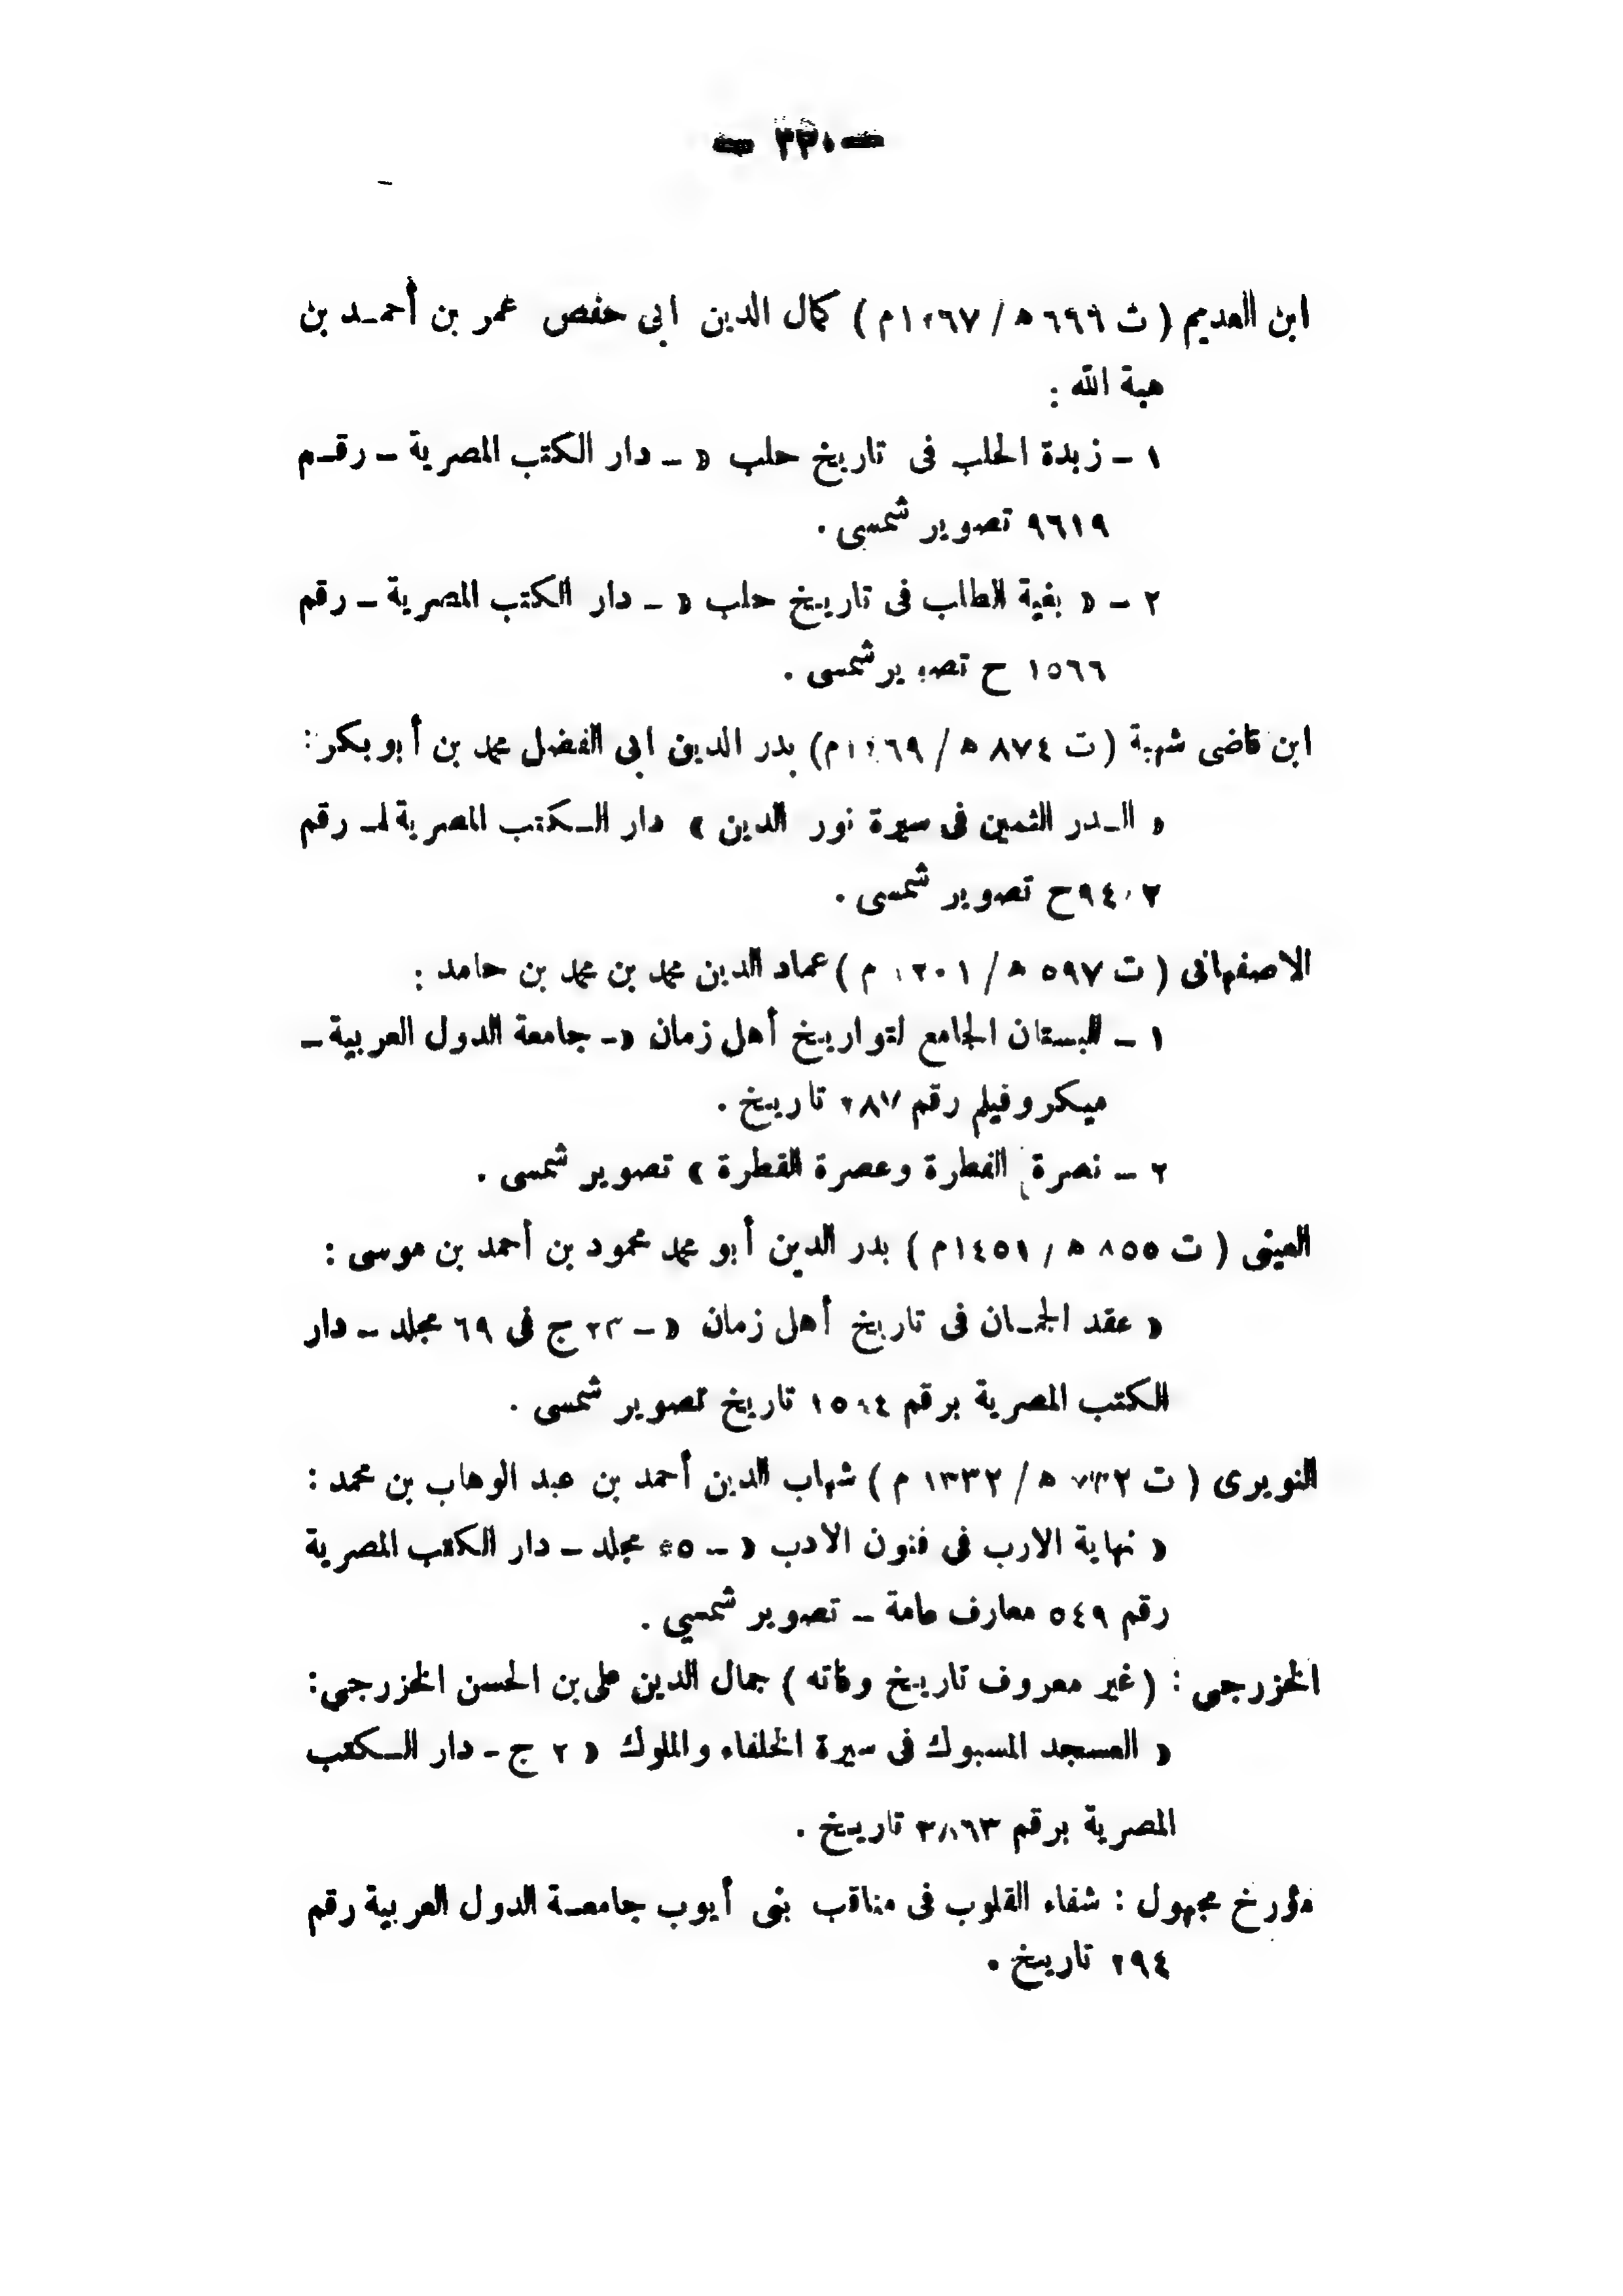 — ٣٣٠ —
ابن العديم ( ت ٦٦٦ ه / ١٢٦٧م ) كمال الدين ابى حفص عمر بن أحمـد بن
هبة الله :
١ – زبدة الحلب فى تاريخ حلب « – دار الكتب المصرية – رقـم
٩٦١٩ تصوير شمسى .
٢ – « بغية الطلب فى تاريخ حلب « – دار الكتب المصرية – رقم
١٥٦٦ ح تصوير شمسى .
ابن قاضى شهبة ( ت ٨٧٤ ه / ١٤٦٩م) بدر الدين ابى الفضل محمد بن أبو بكر :
« الـدر الثمين فى سيرة نور الدين » دار الـكتب المصرية – رقم
٩٤٠٢ح تصوير شمسى .
الاصفهانى ( ت ٥٩٧ ه / ١٢٠١ م ) عماد الدين محمد بن محمد بن حامد :
١ – البستان الجامع لتواريخ أهل زمان « – جامعة الدول العربية –
ميكروفيلم رقم ٢٨٧ تاريخ .
٢ – نصرة الفطرة وعصرة القطرة » تصوير شمسى .
العينى ( ت ٨٥٥ ه / ١٤٥١م ) بدر الدين أبو محمد محمود بن أحمد بن موسى :
« عقد الجمـان فى تاريخ أهل زمان « – ٢٣ ج فى ٦٩ مجلد – دار
الكتب المصرية برقم ١٥٨٤ تاريخ تصوير شمسى .
النويرى ( ت ٧٣٢ ه / ١٣٣٢ م ) شهاب الدين أحمد بن عبد الوهاب بن محمد :
« نهاية الارب فى فنون الادب « – مجلد – دار الكتب المصرية
رقم ٥٤٩ معارف عامة – تصوير شمسي .
الخزرجى : ( غير معروف تاريخ وفاته ) جمال الدين على بن الحسن الخزرجى :
« العسجد المسبوك فى سيرة الخلفاء والملوك « ٢ ج – دار الـكتب
المصرية برقم ٣٨٦٣ تاريخ .
مؤرخ مجهول : شفاء القلوب فى مناقب بنى أيوب جامعـة الدول العربية رقم
٢٩٤ تاريخ .